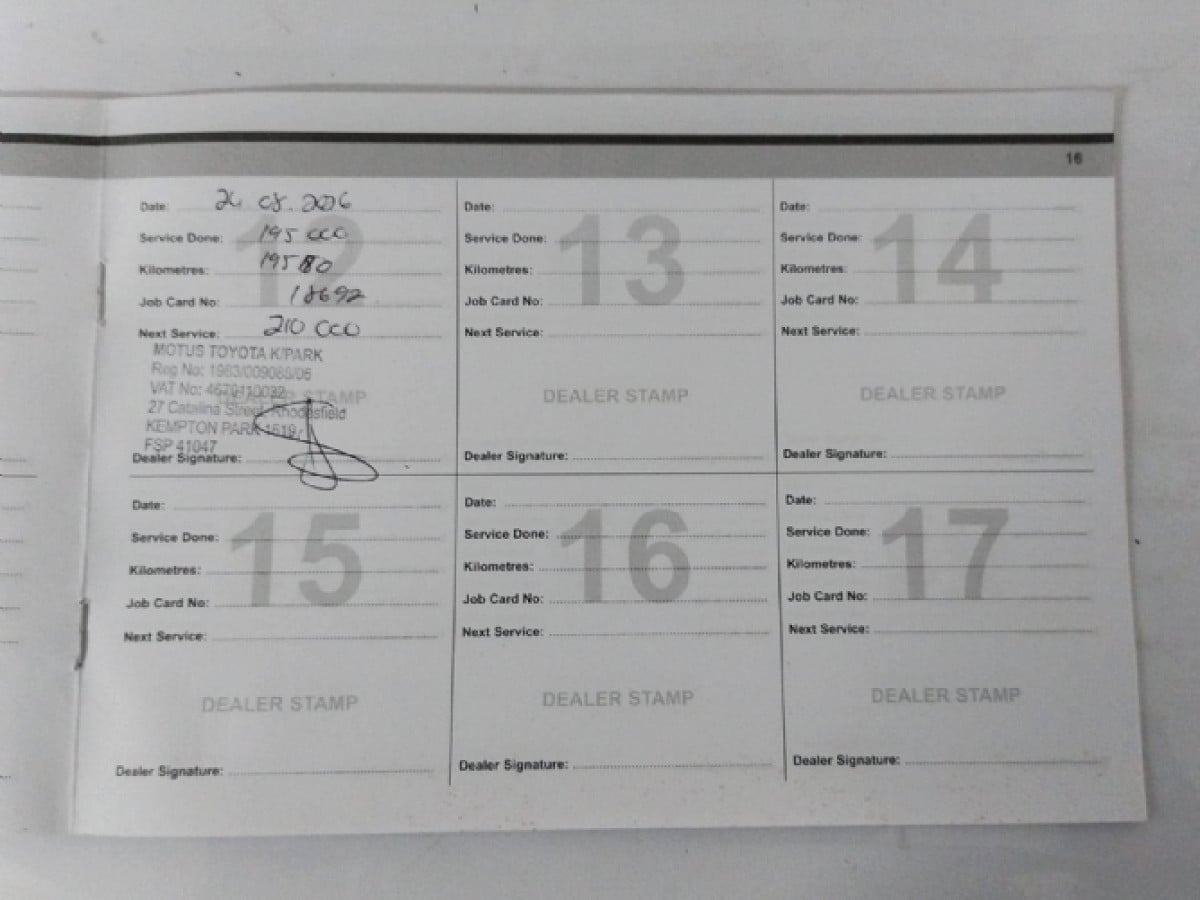 16
Date: 
12
Service Done: 195 000
Kilometres: 19580
Job Card No: 18692
Next Service: 210 000
MOTUS TOYOTA K/PARK
Reg No: 1983/009088/06
VAT No:
DEALER STAMP
27 Catalina Street, Rhodesfield
KEMPTON PARK 1619
FSP 41047
Dealer Signature:
Date:
13
Service Done:
Kilometres:
Job Card No:
Next Service:
DEALER STAMP
Dealer Signature:
Date:
14
Service Done:
Kilometres:
Job Card No:
Next Service:
DEALER STAMP
Dealer Signature:
Date:
15
Service Done:
Kilometres:
Job Card No:
Next Service:
DEALER STAMP
Dealer Signature:
Date:
16
Service Done:
Kilometres:
Job Card No:
Next Service:
DEALER STAMP
Dealer Signature:
Date:
17
Service Done:
Kilometres:
Job Card No:
Next Service:
DEALER STAMP
Dealer Signature: